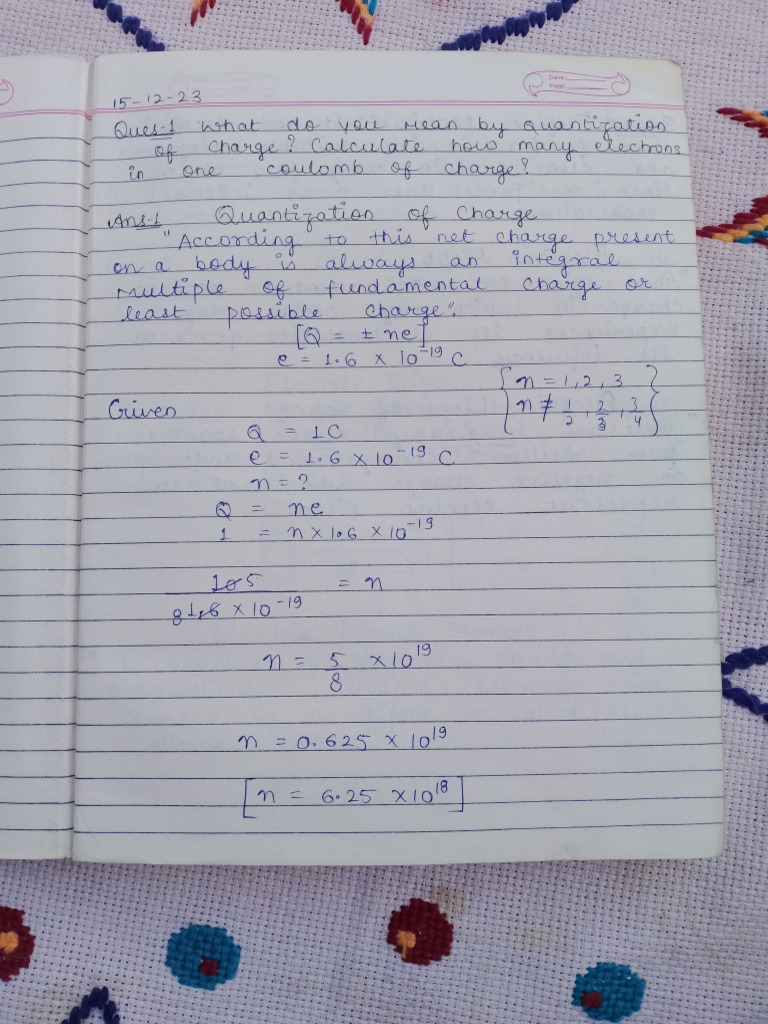 Date
Page
15-12-23
Ques-1 What do you mean by quantization
of charge? Calculate how many electrons
in one coulomb of charge?
Ans-1 Quantization of Charge
"According to this net charge present
on a body is always an integral
multiple of fundamental charge or
least possible charge".
[Q = ± ne]
e = 1.6 × 10⁻¹⁹ C
{ n = 1, 2, 3 }
{ n ≠ 1/2, 2/3, 3/4 }
Given
Q = 1C
e = 1.6 × 10⁻¹⁹ C
n = ?
Q = ne
1 = n × 1.6 × 10⁻¹⁹
10 5 = n
8 1.6 × 10⁻¹⁹
n = 5/8 × 10¹⁹
n = 0.625 × 10¹⁹
[n = 6.25 × 10¹⁸]